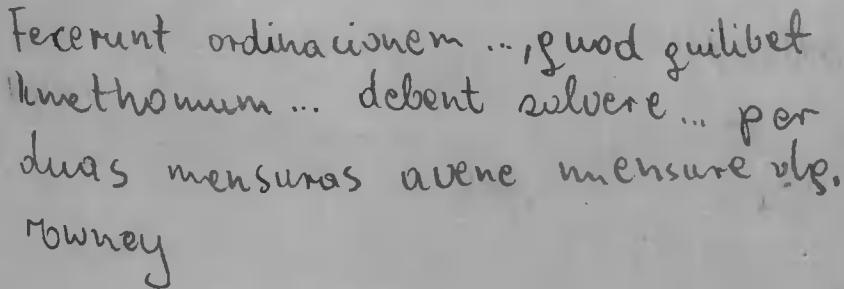 Fecerunt ordinacionem ..., quod quilibet
kmethonum... debent solvere... per
duas mensuras avene mensure vlg.
rowney